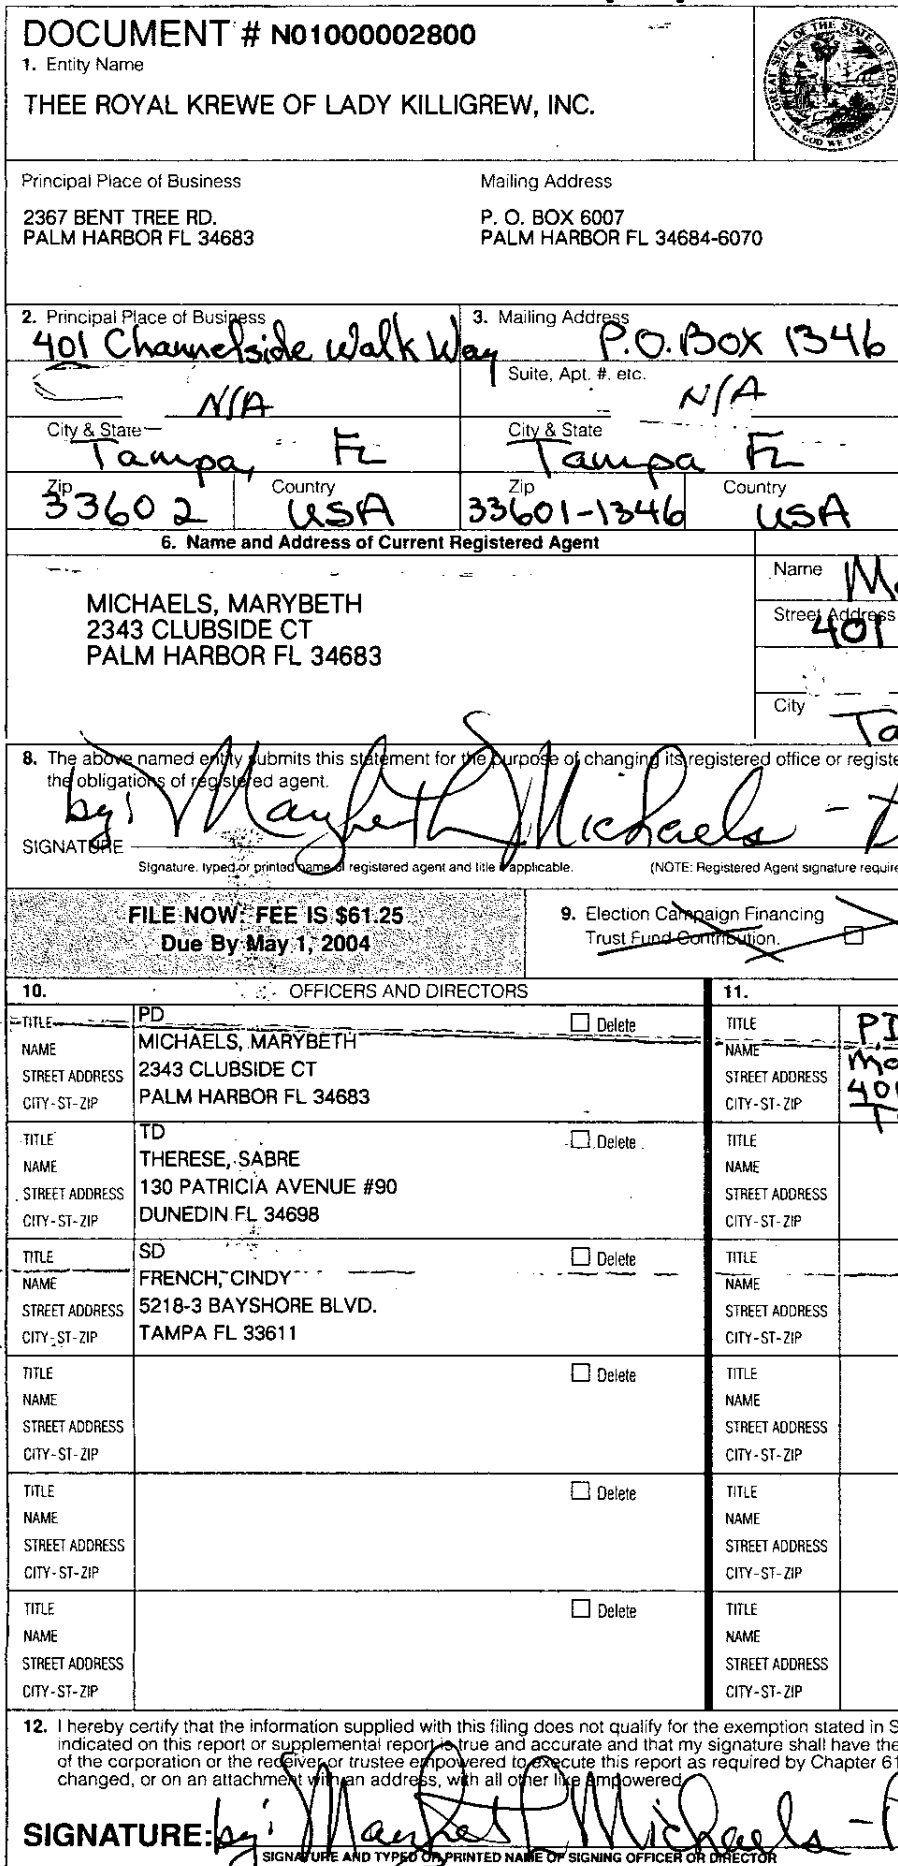 DOCUMENT # N01000002800
1. Entity Name
THEE ROYAL KREWE OF LADY KILLIGREW, INC.
GREAT SEAL OF THE STATE OF FLORIDA
IN GOD WE TRUST
Principal Place of Business
Mailing Address
2367 BENT TREE RD.
PALM HARBOR FL 34683
P. O. BOX 6007
PALM HARBOR FL 34684-6070
2. Principal Place of Business
401 Channelside Walk Way
3. Mailing Address
P.O. Box 1346
N/A
Suite, Apt. #, etc.
N/A
City & State
Tampa, FL
City & State
Tampa FL
Zip
33602
Country
USA
Zip
33601-1346
Country
USA
6. Name and Address of Current Registered Agent
MICHAELS, MARYBETH
2343 CLUBSIDE CT
PALM HARBOR FL 34683
Name
Street Address
401
City
8. The above named entity submits this statement for the purpose of changing its registered office or registe
the obligations of registered agent.
by: Marybeth Michaels -
SIGNATURE
Signature, typed or printed name of registered agent and title if applicable.
(NOTE: Registered Agent signature require
FILE NOW: FEE IS $61.25
Due By May 1, 2004
9. Election Campaign Financing
Trust Fund Contribution.
10. OFFICERS AND DIRECTORS
11.
TITLE PD Delete
NAME MICHAELS, MARYBETH
STREET ADDRESS 2343 CLUBSIDE CT
CITY-ST-ZIP PALM HARBOR FL 34683
TITLE
NAME
STREET ADDRESS
CITY-ST-ZIP
TITLE TD Delete
NAME THERESE, SABRE
STREET ADDRESS 130 PATRICIA AVENUE #90
CITY-ST-ZIP DUNEDIN FL 34698
TITLE
NAME
STREET ADDRESS
CITY-ST-ZIP
TITLE SD Delete
NAME FRENCH, CINDY
STREET ADDRESS 5218-3 BAYSHORE BLVD.
CITY-ST-ZIP TAMPA FL 33611
TITLE
NAME
STREET ADDRESS
CITY-ST-ZIP
TITLE Delete
NAME
STREET ADDRESS
CITY-ST-ZIP
TITLE
NAME
STREET ADDRESS
CITY-ST-ZIP
TITLE Delete
NAME
STREET ADDRESS
CITY-ST-ZIP
TITLE
NAME
STREET ADDRESS
CITY-ST-ZIP
TITLE Delete
NAME
STREET ADDRESS
CITY-ST-ZIP
TITLE
NAME
STREET ADDRESS
CITY-ST-ZIP
12. I hereby certify that the information supplied with this filing does not qualify for the exemption stated in S
indicated on this report or supplemental report is true and accurate and that my signature shall have the
of the corporation or the receiver or trustee empowered to execute this report as required by Chapter 61
changed, or on an attachment with an address, with all other like empowered.
SIGNATURE: by: Marybeth Michaels -
SIGNATURE AND TYPED OR PRINTED NAME OF SIGNING OFFICER OR DIRECTOR